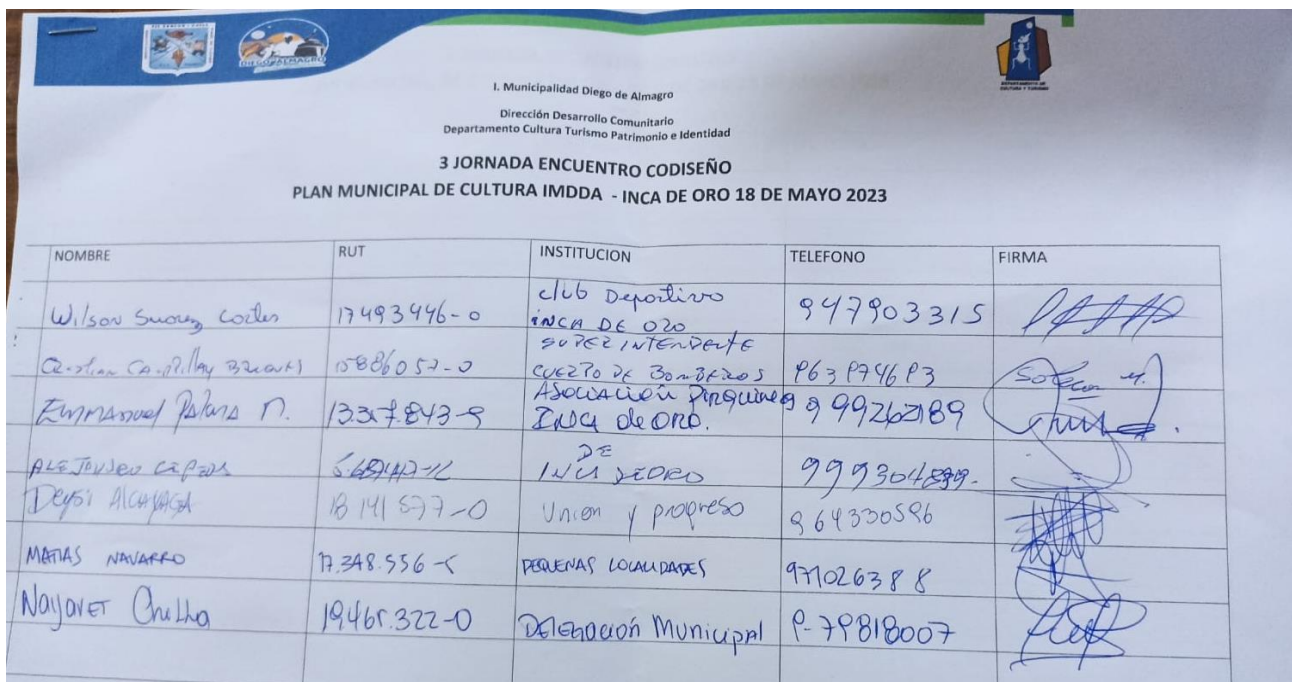 DIEGO DE ALMAGRO
DEPARTAMENTO DE
CULTURA Y TURISMO
I. Municipalidad Diego de Almagro
Dirección Desarrollo Comunitario
Departamento Cultura Turismo Patrimonio e Identidad
3 JORNADA ENCUENTRO CODISEÑO
PLAN MUNICIPAL DE CULTURA IMDDA - INCA DE ORO 18 DE MAYO 2023
NOMBRE RUT INSTITUCION TELEFONO FIRMA
Wilson Suarez Cortes 17493446-0 club Deportivo INCA DE ORO 947903315
SUPERINTENDENTE
CUERPO DE BOMBEROS
EMMANUEL 13.317.843-9 Asociación Pirquineros INCA de ORO. 999262189
DE
Deysi Alcayaga 18 141 577-0 Union y progreso 964330596
MATIAS NAVARRO 17.348.556-5 PEQUEÑAS LOCALIDADES 971026388
Nayaret 19.465.322-0 Delegación Municipal 9-79818007